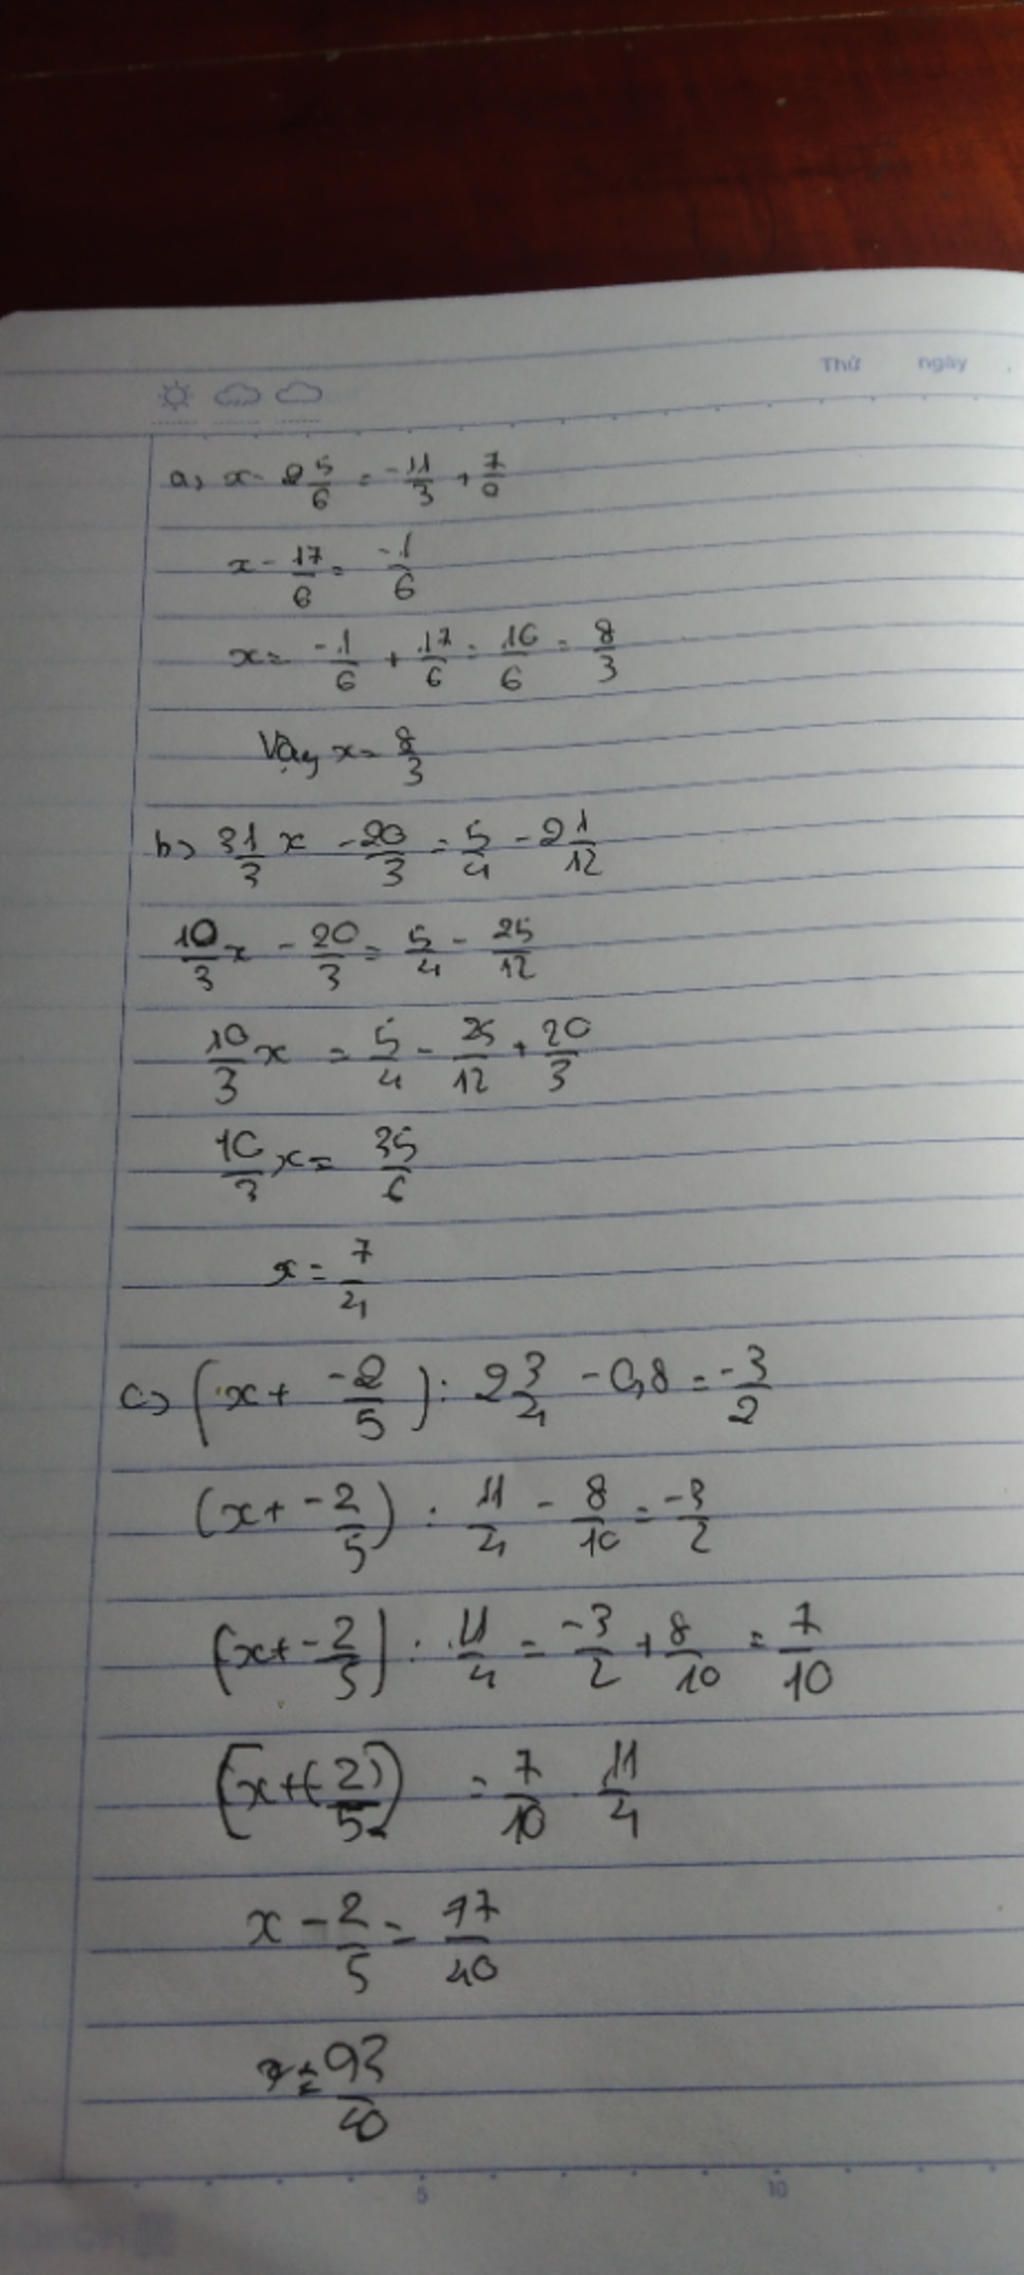 Thứ ngày
a) x - 2 5/6 = -11/3 + 7/0
x - 17/6 = -1/6
x = -1/6 + 17/6 = 16/6 = 8/3
Vậy x = 8/3
b) 3 1/3 x - 20/3 = 5/4 - 2 1/12
10/3 x - 20/3 = 5/4 - 25/12
10/3 x = 5/4 - 25/12 + 20/3
10/3 x = 35/6
x = 7/4
c) (x + -2/5) : 2 3/4 - 0,8 = -3/2
(x + -2/5) : 11/4 - 8/10 = -3/2
(x + -2/5) : 11/4 = -3/2 + 8/10 = 7/10
(x + (-2)/5) = 7/10 . 11/4
x - 2/5 = 77/40
x = 93/40
5 10